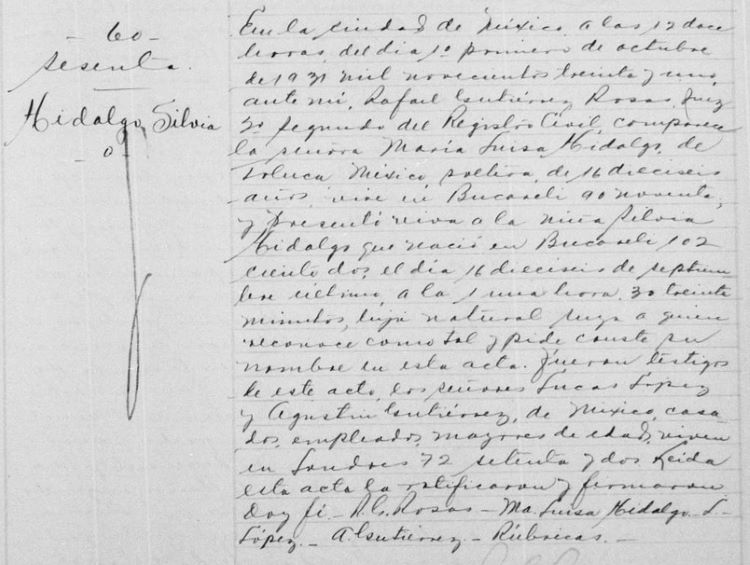 - 60 -
sesenta.
Hidalgo, Silvia
- o -
En la ciudad de México, a las 12 doce
horas, del día 1o primero de octubre
de 1931 mil novecientos treinta y uno,
ante mí, Rafael Gutiérrez Rosas, Juez
2o Segundo del Registro Civil, comparece
la señora María Luisa Hidalgo, de
Toluca México soltera, de 16 dieciseis
años, vive en Bucareli 90 noventa,
y presentó viva a la niña Silvia
Hidalgo que nació en Bucareli 102
ciento dos, el día 16 dieciseis de septiem-
bre último, a la 1 una hora, 30 treinta
minutos, hija natural suya a quien
reconoce como tal y pide conste su
nombre en esta acta. Fueron testigos
de este acto, los señores Lucas López
y Agustín Gutiérrez, de México, casa-
dos, empleados, mayores de edad, viven
en Londres 72 setenta y dos. Leida
esta acta la ratificaron y firmaron
Doy fé. - R. G. Rosas - Ma. Luisa Hidalgo - L.
López. - A. Gutiérrez - Rúbricas. -